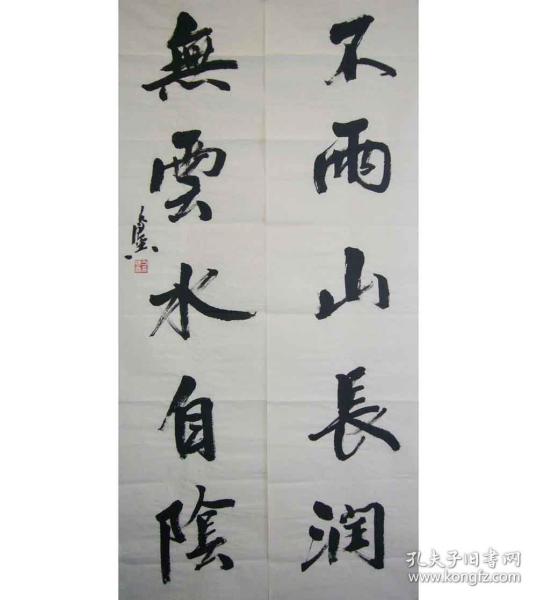 不雨山長润
無雲水自陰
孔夫子旧书网
www.kongfz.com